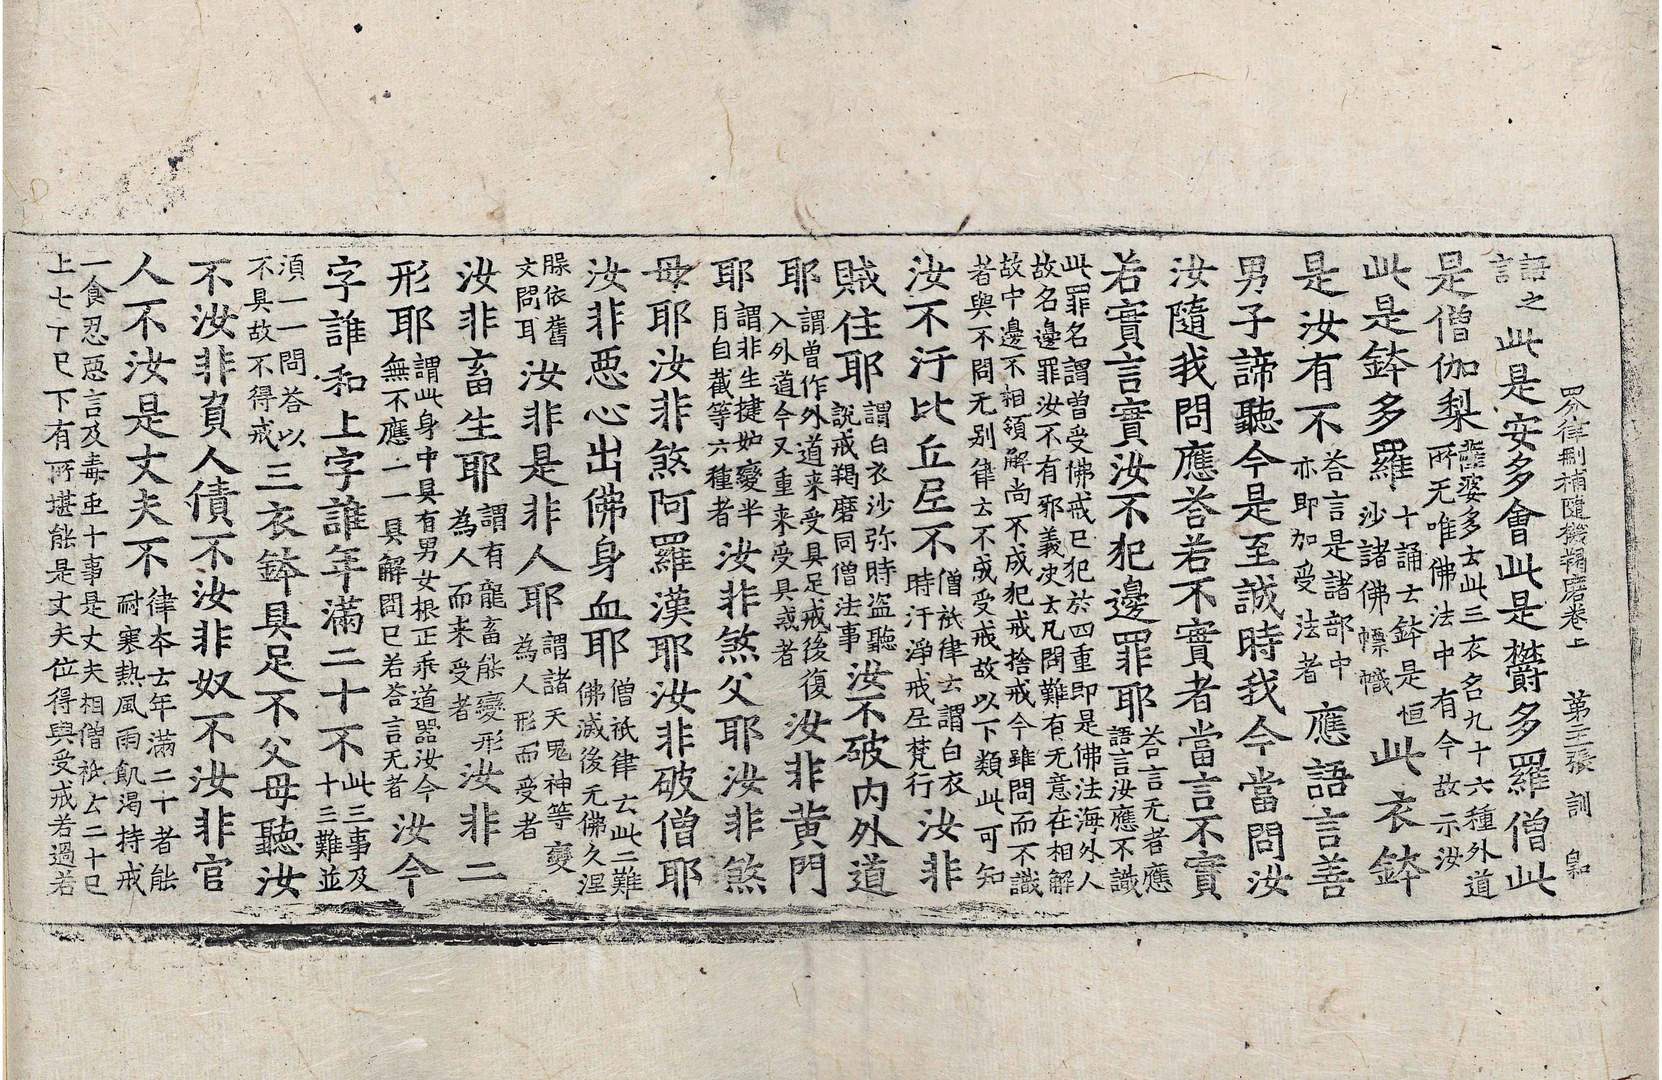 四分律刪補隨機羯磨卷上 第王張 訓 㒵
語之言此是安多會此是欝多羅僧此
是僧伽梨薩婆多云此三衣名九十六種外道所无唯佛法中有今故示汝
此是鉢多羅十誦云鉢是恒沙諸佛幖幟此衣鉢
是汝有不荅言是諸部中亦即加受法者應語言善
男子諦聽今是至誠時我今當問汝
汝隨我問應荅若不實者當言不實
若實言實汝不犯邊罪耶荅言无者應語言汝應不識
此罪名謂曽受佛戒已犯於四重即是佛法海外人故名邊罪汝不有耶義决云凡問難有无意在相解
故中邊不相領解尚不成犯戒捨戒今雖問而不識者與不問无别律云不成受戒故以下類此可知
汝不汙比丘𡰱不僧祇律云謂白衣時汙淨戒𡰱梵行汝非
賊住耶謂白衣沙弥時盗聽說戒羯磨同僧法事汝不破内外道
耶謂曽作外道来受具足戒後復入外道今又重来受具戒者汝非黄門
耶謂非生揵妬變半月自截等六種者汝非煞父耶汝非煞
母耶汝非煞阿羅漢耶汝非破僧耶
汝非惡心出佛身血耶僧祇律云此二難佛滅後无佛久涅
脲依舊文問耳汝非是非人耶謂諸天鬼神等變為人形而受者
汝非畜生耶謂有龍畜能變形為人而来受者汝非二
形耶謂此身中具有男女根正乖道器汝今無不應一一具解問已若荅言无者汝今
字誰和上字誰年滿二十不此三事及十三難並
湏一一問荅以不具故不得戒三衣鉢具足不父母聽汝
不汝非負人債不汝非奴不汝非官
人不汝是丈夫不律本云年滿二十者能耐寒熱風雨飢渴持戒
一食忍惡言及毒虫十事是丈夫相僧祇云二十已上七十已下有所堪能是丈夫位得與受戒若過若